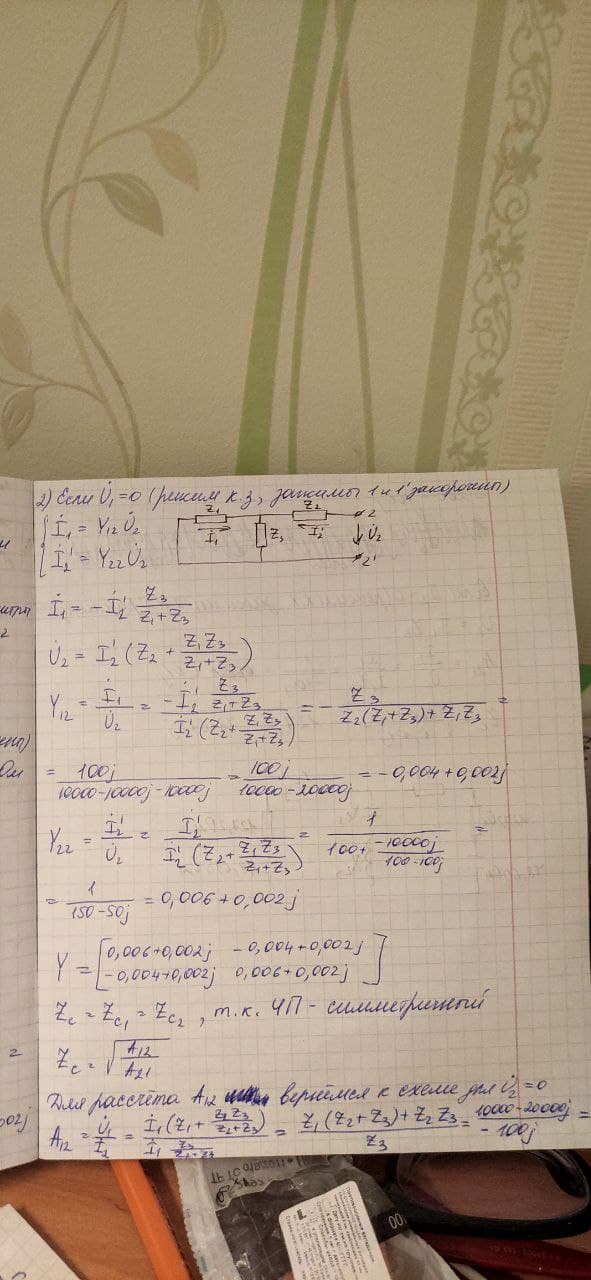 2) Если U̇₁=0 (режим к.з, зажимы 1 и 1' закорочены)
İ₁ = Y₁₂U̇₂
İ₂' = Y₂₂U̇₂
Z₁ Z₂ 2
İ₁ Z₃ İ₂' U̇₂
2'
İ₁ = -İ₂' Z₃/(Z₁+Z₃)
U̇₂ = İ₂'(Z₂ + Z₁Z₃/(Z₁+Z₃))
Y₁₂ = İ₁/U̇₂ = (-İ₂' Z₃/(Z₁+Z₃))/(İ₂'(Z₂+Z₁Z₃/(Z₁+Z₃))) = - Z₃/(Z₂(Z₁+Z₃)+Z₁Z₃) =
= 100j/(10000-10000j-10000j) = 100j/(10000-20000j) = -0,004+0,002j
Y₂₂ = İ₂'/U̇₂ = İ₂'/(İ₂'(Z₂+Z₁Z₃/(Z₁+Z₃))) = 1/(100+(-10000j)/(100-100j)) =
= 1/(150-50j) = 0,006+0,002j
Y = [0,006+0,002j -0,004+0,002j
-0,004+0,002j 0,006+0,002j]
Z_c = Z_c₁ = Z_c₂, т.к. ЧП - симметричный
Z_c = √(A₁₂/A₂₁)
Для рассчёта A₁₂ вернёмся к схеме для U̇₂=0
A₁₂ = U̇₁/İ₂ = (İ₁(Z₁+Z₂Z₃/(Z₂+Z₃)))/(İ₁ Z₃/(Z₁+Z₃)) = (Z₁(Z₂+Z₃)+Z₂Z₃)/Z₃ = (10000-20000j)/(-100j) =